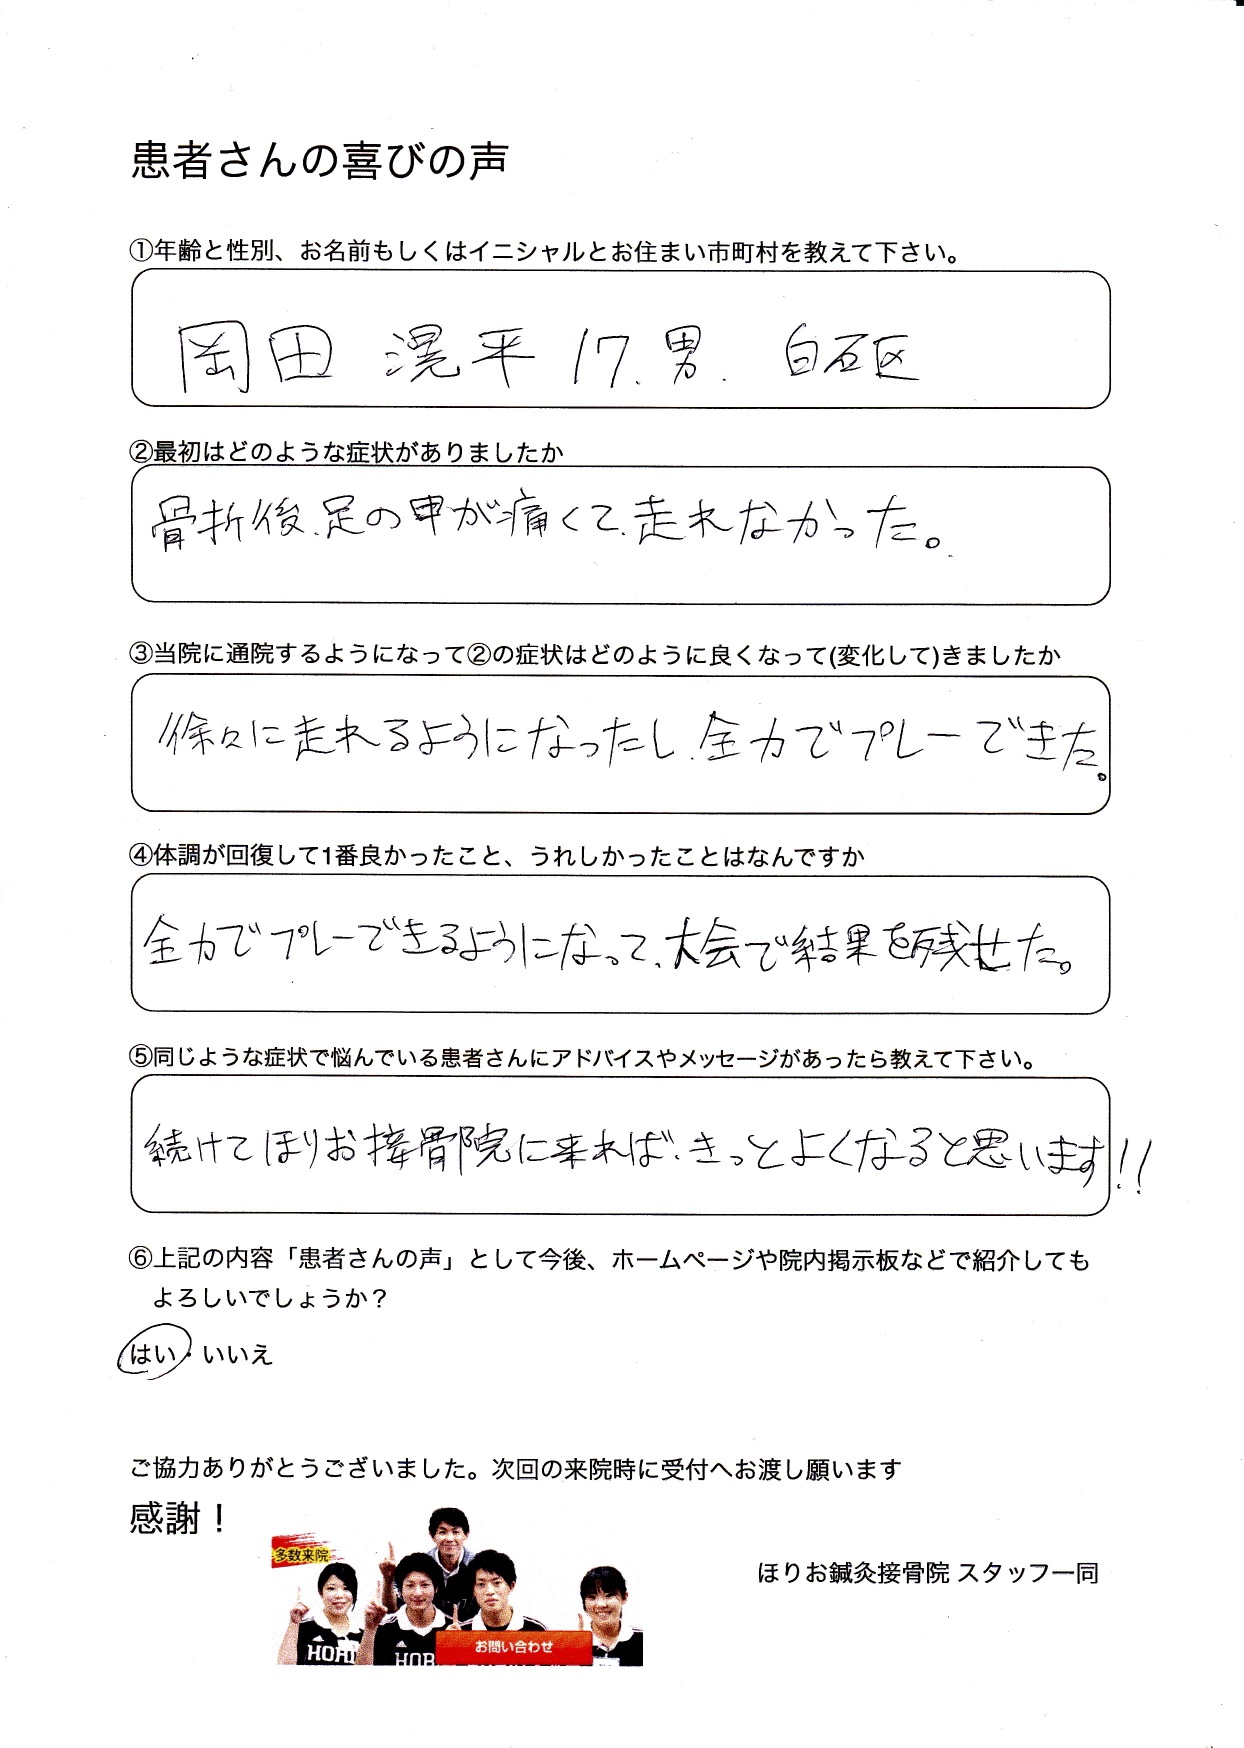 患者さんの喜びの声
①年齢と性別、お名前もしくはイニシャルとお住まい市町村を教えて下さい。
岡田 滉平 17. 男. 白石区
②最初はどのような症状がありましたか
骨折後、足の甲が痛くて、走れなかった。
③当院に通院するようになって②の症状はどのように良くなって(変化して)きましたか
徐々に走れるようになったし、全力でプレーできた。
④体調が回復して1番良かったこと、うれしかったことはなんですか
全力でプレーできるようになって、大会で結果を残せた。
⑤同じような症状で悩んでいる患者さんにアドバイスやメッセージがあったら教えて下さい。
続けてほりお接骨院に来れば、きっとよくなると思います!!
⑥上記の内容「患者さんの声」として今後、ホームページや院内掲示板などで紹介しても
よろしいでしょうか?
はい・いいえ
ご協力ありがとうございました。次回の来院時に受付へお渡し願います
感謝!
多数来院
ほりお鍼灸接骨院 スタッフ一同
お問い合わせ
HORI
HOR